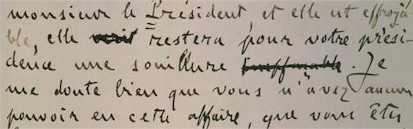 monsieur le Président, et elle est effroya
ble, elle restera pour votre prési-
dence une souillure ineffaçable. Je
me doute bien que vous n'avez aucun
pouvoir en cette affaire, que vous êtes